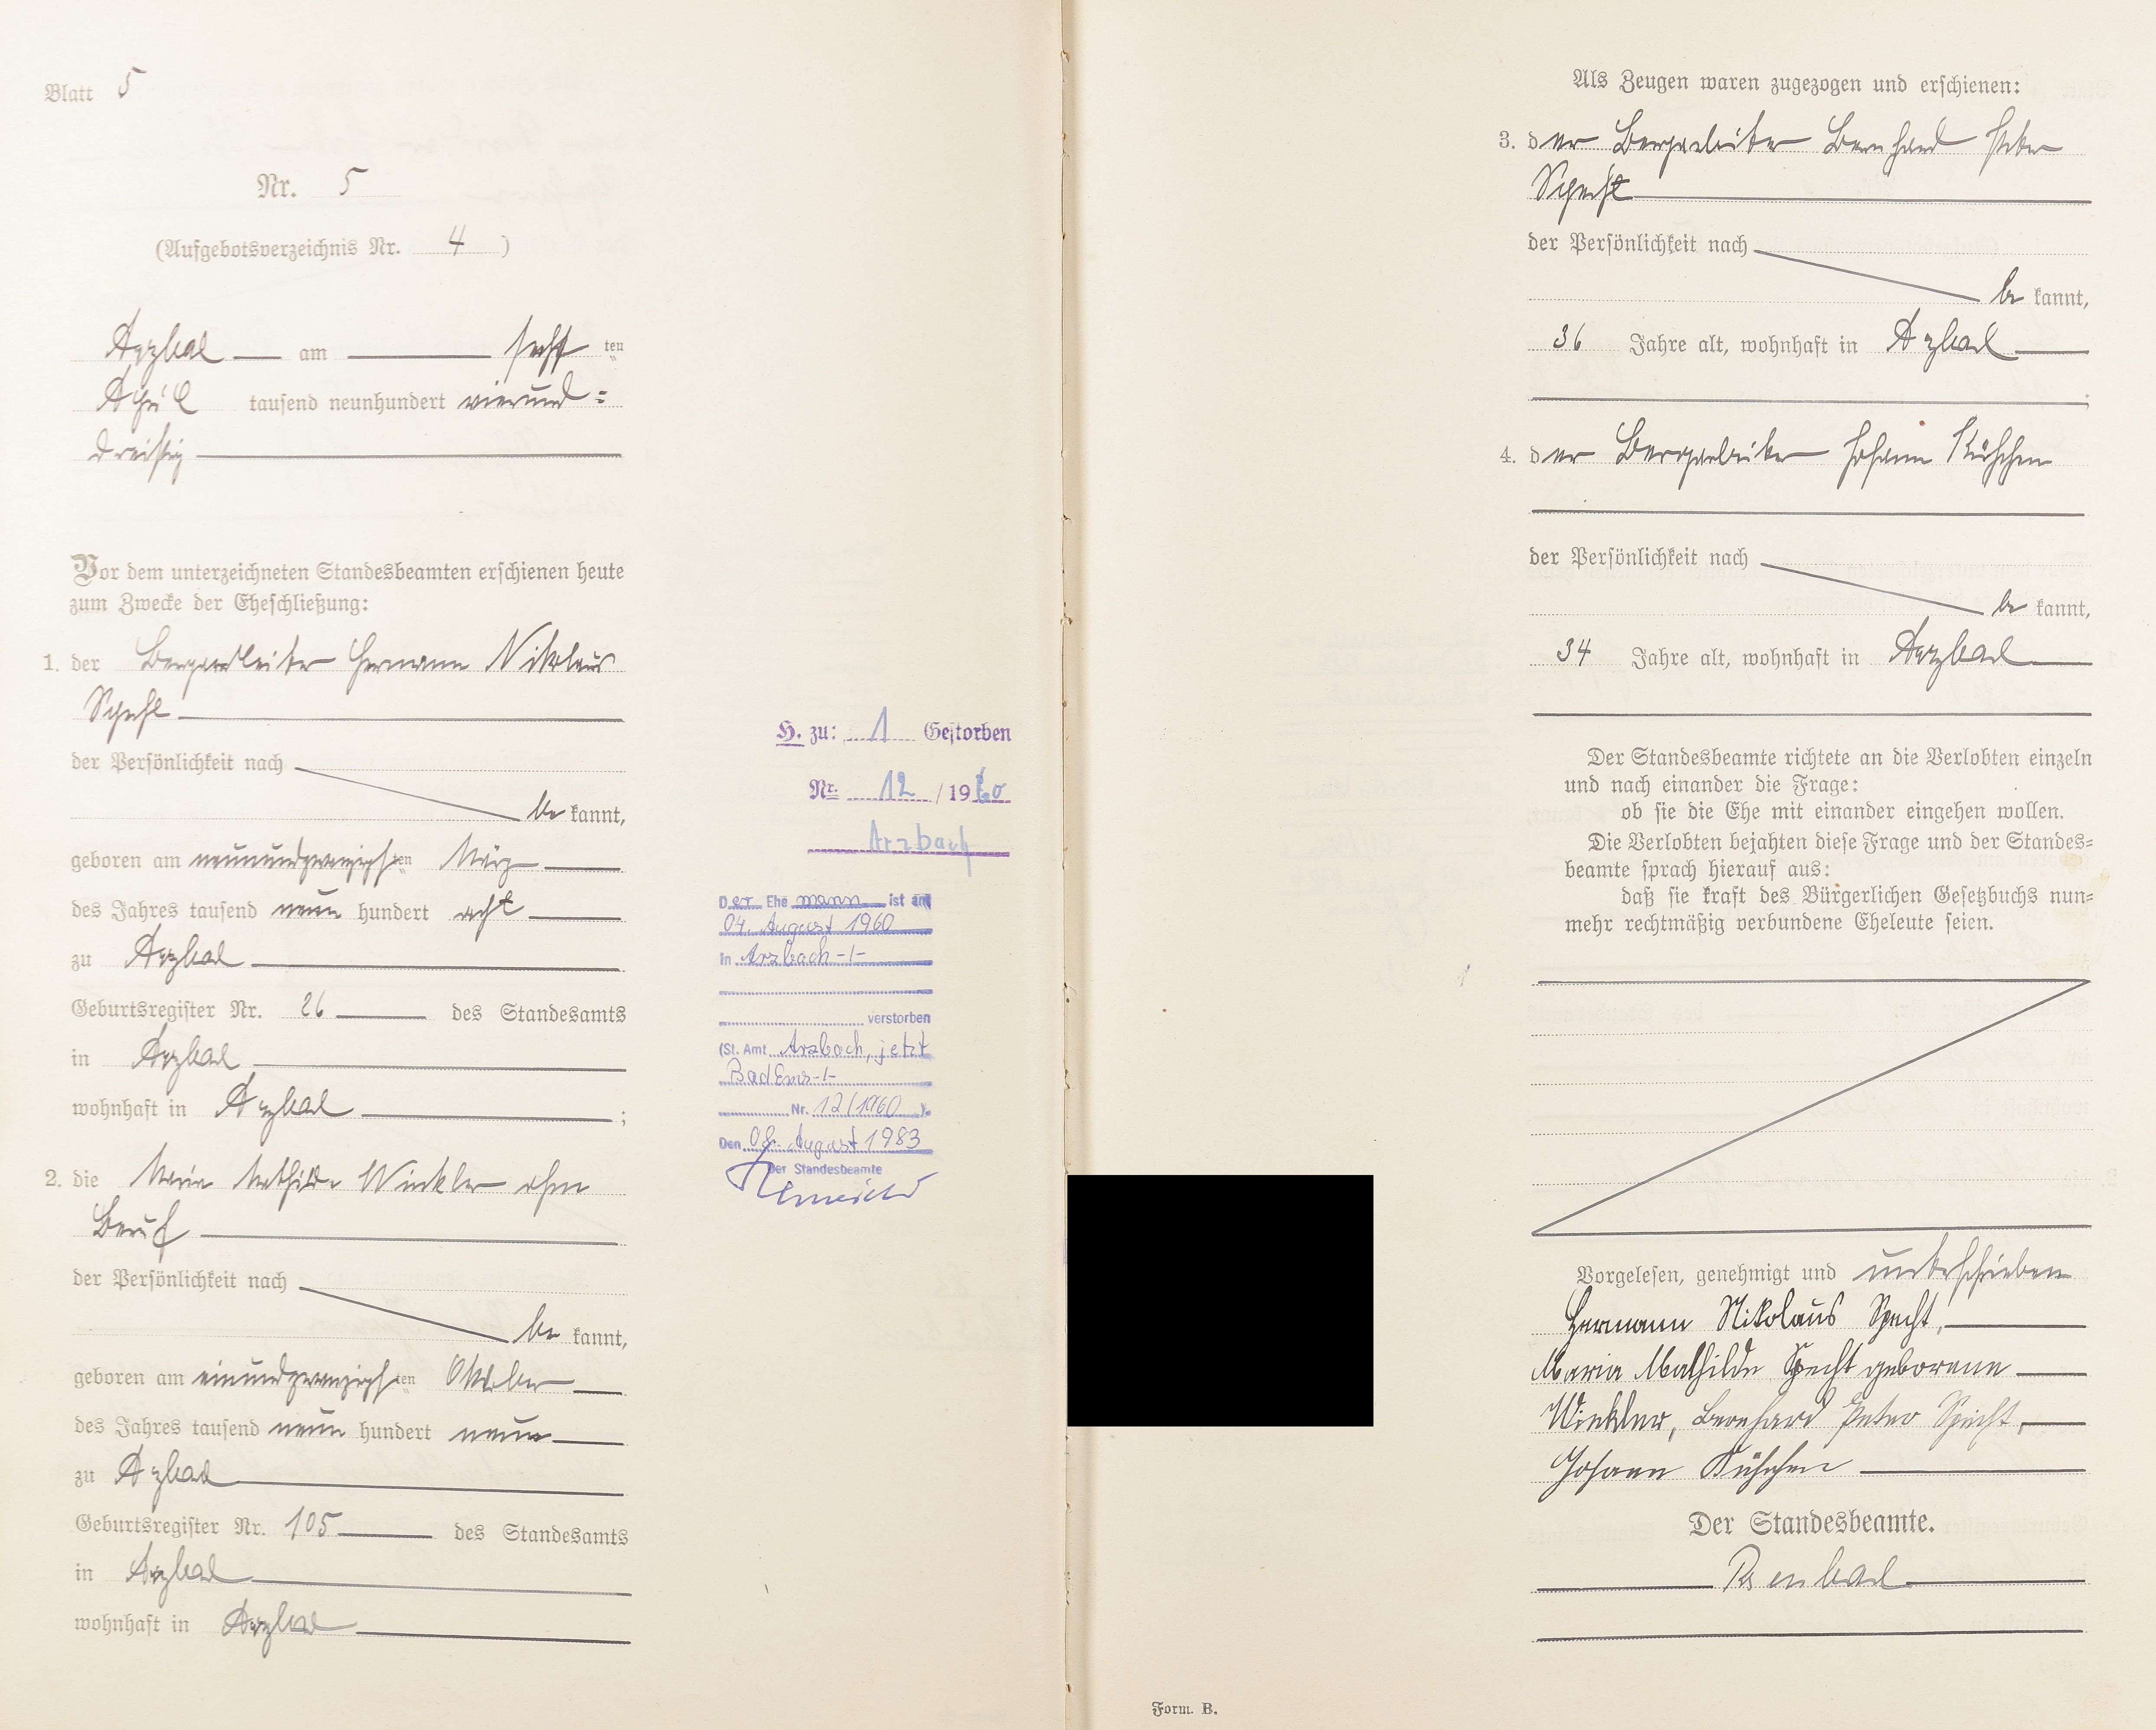 Blatt 5
Nr. 5
(Aufgebotsverzeichnis Nr. 4)
Arzbach am sechsten
April tausend neunhundert vierund=
dreißig
Vor dem unterzeichneten Standesbeamten erschienen heute
zum Zwecke der Eheschließung:
1. der Bergarbeiter Hermann Nikolaus
Specht
der Persönlichkeit nach
be kannt,
geboren am neunundzwanzigsten März
des Jahres tausend neun hundert acht
zu Arzbach
Geburtsregister Nr. 26 des Standesamts
in Arzbach
wohnhaft in Arzbach ;
2. die Maria Mathilde Winkler ohne
Beruf
der Persönlichkeit nach
be kannt,
geboren am einundzwanzigsten Oktober
des Jahres tausend neun hundert neun
zu Arzbach
Geburtsregister Nr. 105 des Standesamts
in Arzbach
wohnhaft in Arzbach
H. zu: 1 Gestorben
Nr. 12 / 1960
Arzbach
Der Ehe mann ist am
04. August 1960
in Arzbach -/-
verstorben
(St. Amt Arzbach, jetzt
Bad Ems -/-
Nr. 12/1960 ).
Den 08. August 1983
Der Standesbeamte
Als Zeugen waren zugezogen und erschienen:
3. der Bergarbeiter Bernhard Peter
Specht
der Persönlichkeit nach
be kannt,
36 Jahre alt, wohnhaft in Arzbach
;
4. der Bergarbeiter Johann Kühchen
der Persönlichkeit nach
be kannt,
34 Jahre alt, wohnhaft in Arzbach
Der Standesbeamte richtete an die Verlobten einzeln
und nach einander die Frage:
ob sie die Ehe mit einander eingehen wollen.
Die Verlobten bejahten diese Frage und der Standes=
beamte sprach hierauf aus:
daß sie kraft des Bürgerlichen Gesetzbuchs nun=
mehr rechtmäßig verbundene Eheleute seien.
Vorgelesen, genehmigt und unterschrieben
Hermann Nikolaus Specht,
Maria Mathilde Specht geborene
Winkler, Bernhard Peter Specht,
Johann Kühchen
Der Standesbeamte.
Form. B.